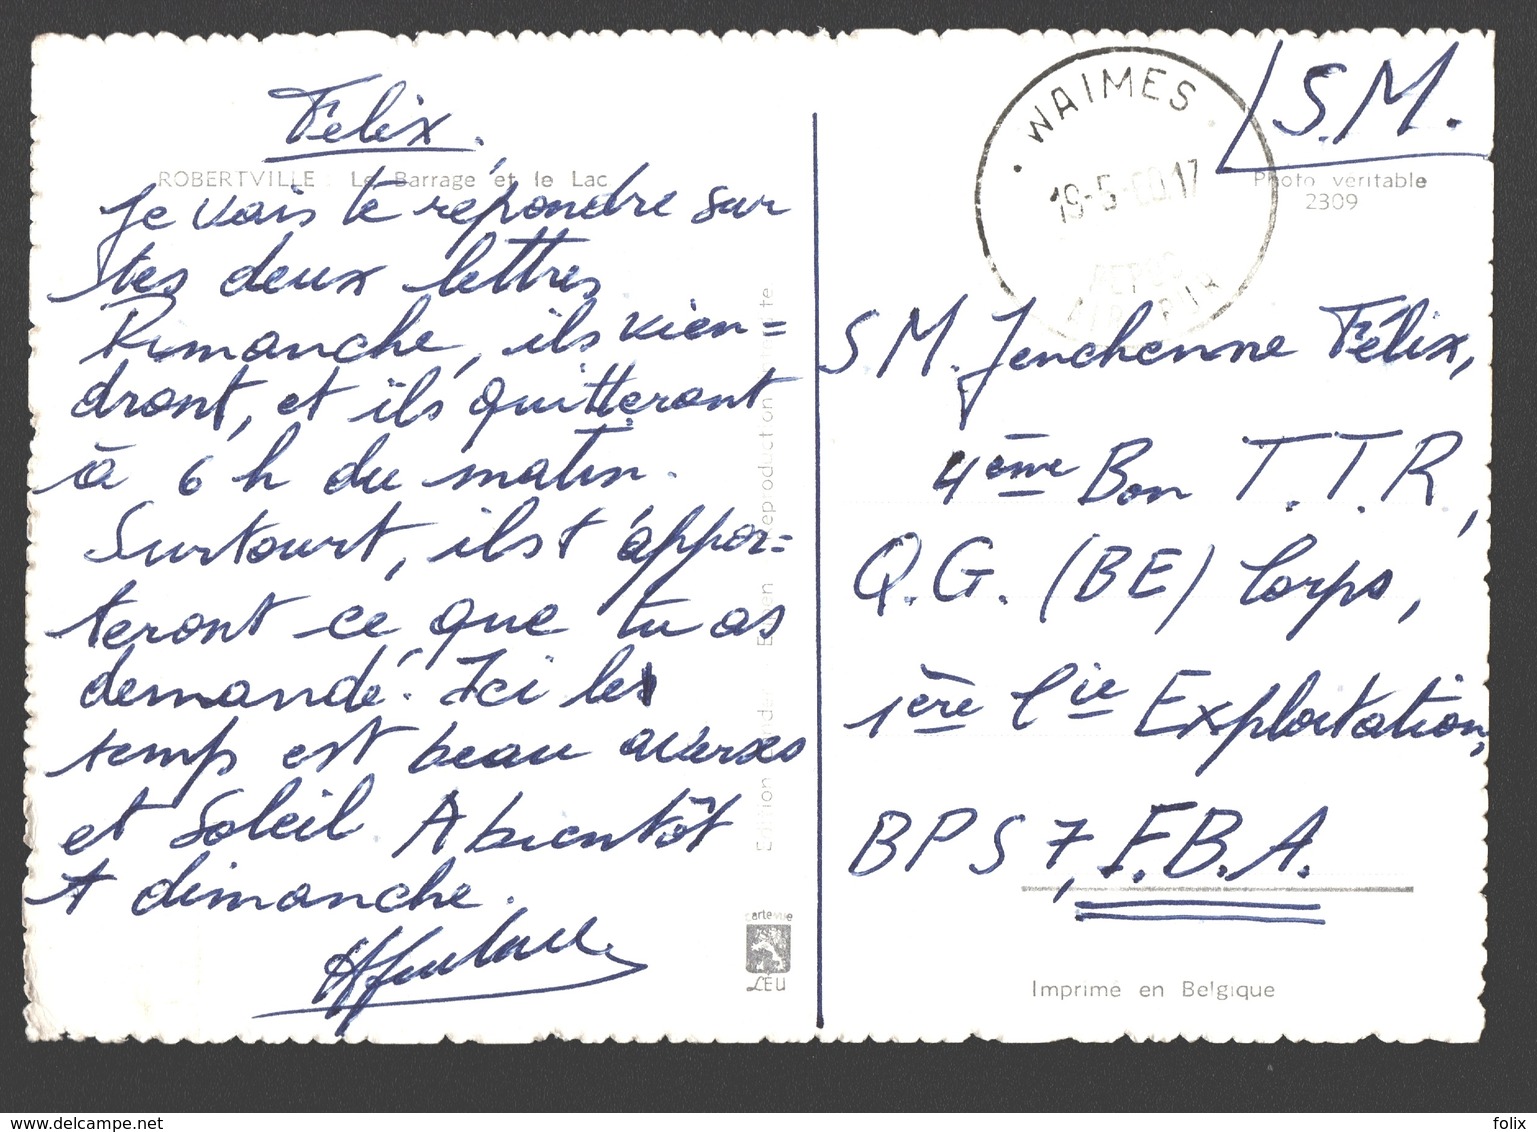 Felix.
ROBERTVILLE Le Barrage et le Lac
Je vais te répondre sur
tes deux lettres
Dimanche, ils vien=
dront, et ils quitteront
à 6 h du matin.
Surtourt, ils t'appor=
teront ce que tu as
demandé. Ici le
temps est beau averses
et Soleil A bientôt
A dimanche.
Edition Eupen Reproduction interdite
carte vue
LEU
WAIMES
19-5- 17
S.M.
Photo véritable
2309
S M. Jenchenne Félix,
4ème Bon T.T.R,
Q.G. (BE) Corps,
1ère Cie Exploitation,
BPS 7, F.B.A.
Imprimé en Belgique
delcampe.net
folix